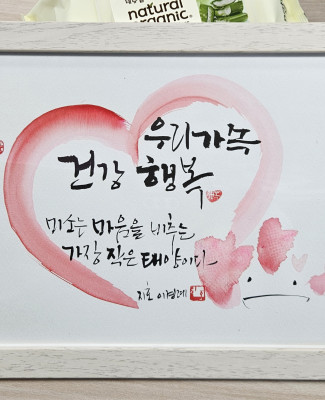 natural
organic
우리가족
건강 행복
미소는 마음을 비추는
가장 작은 태양이다